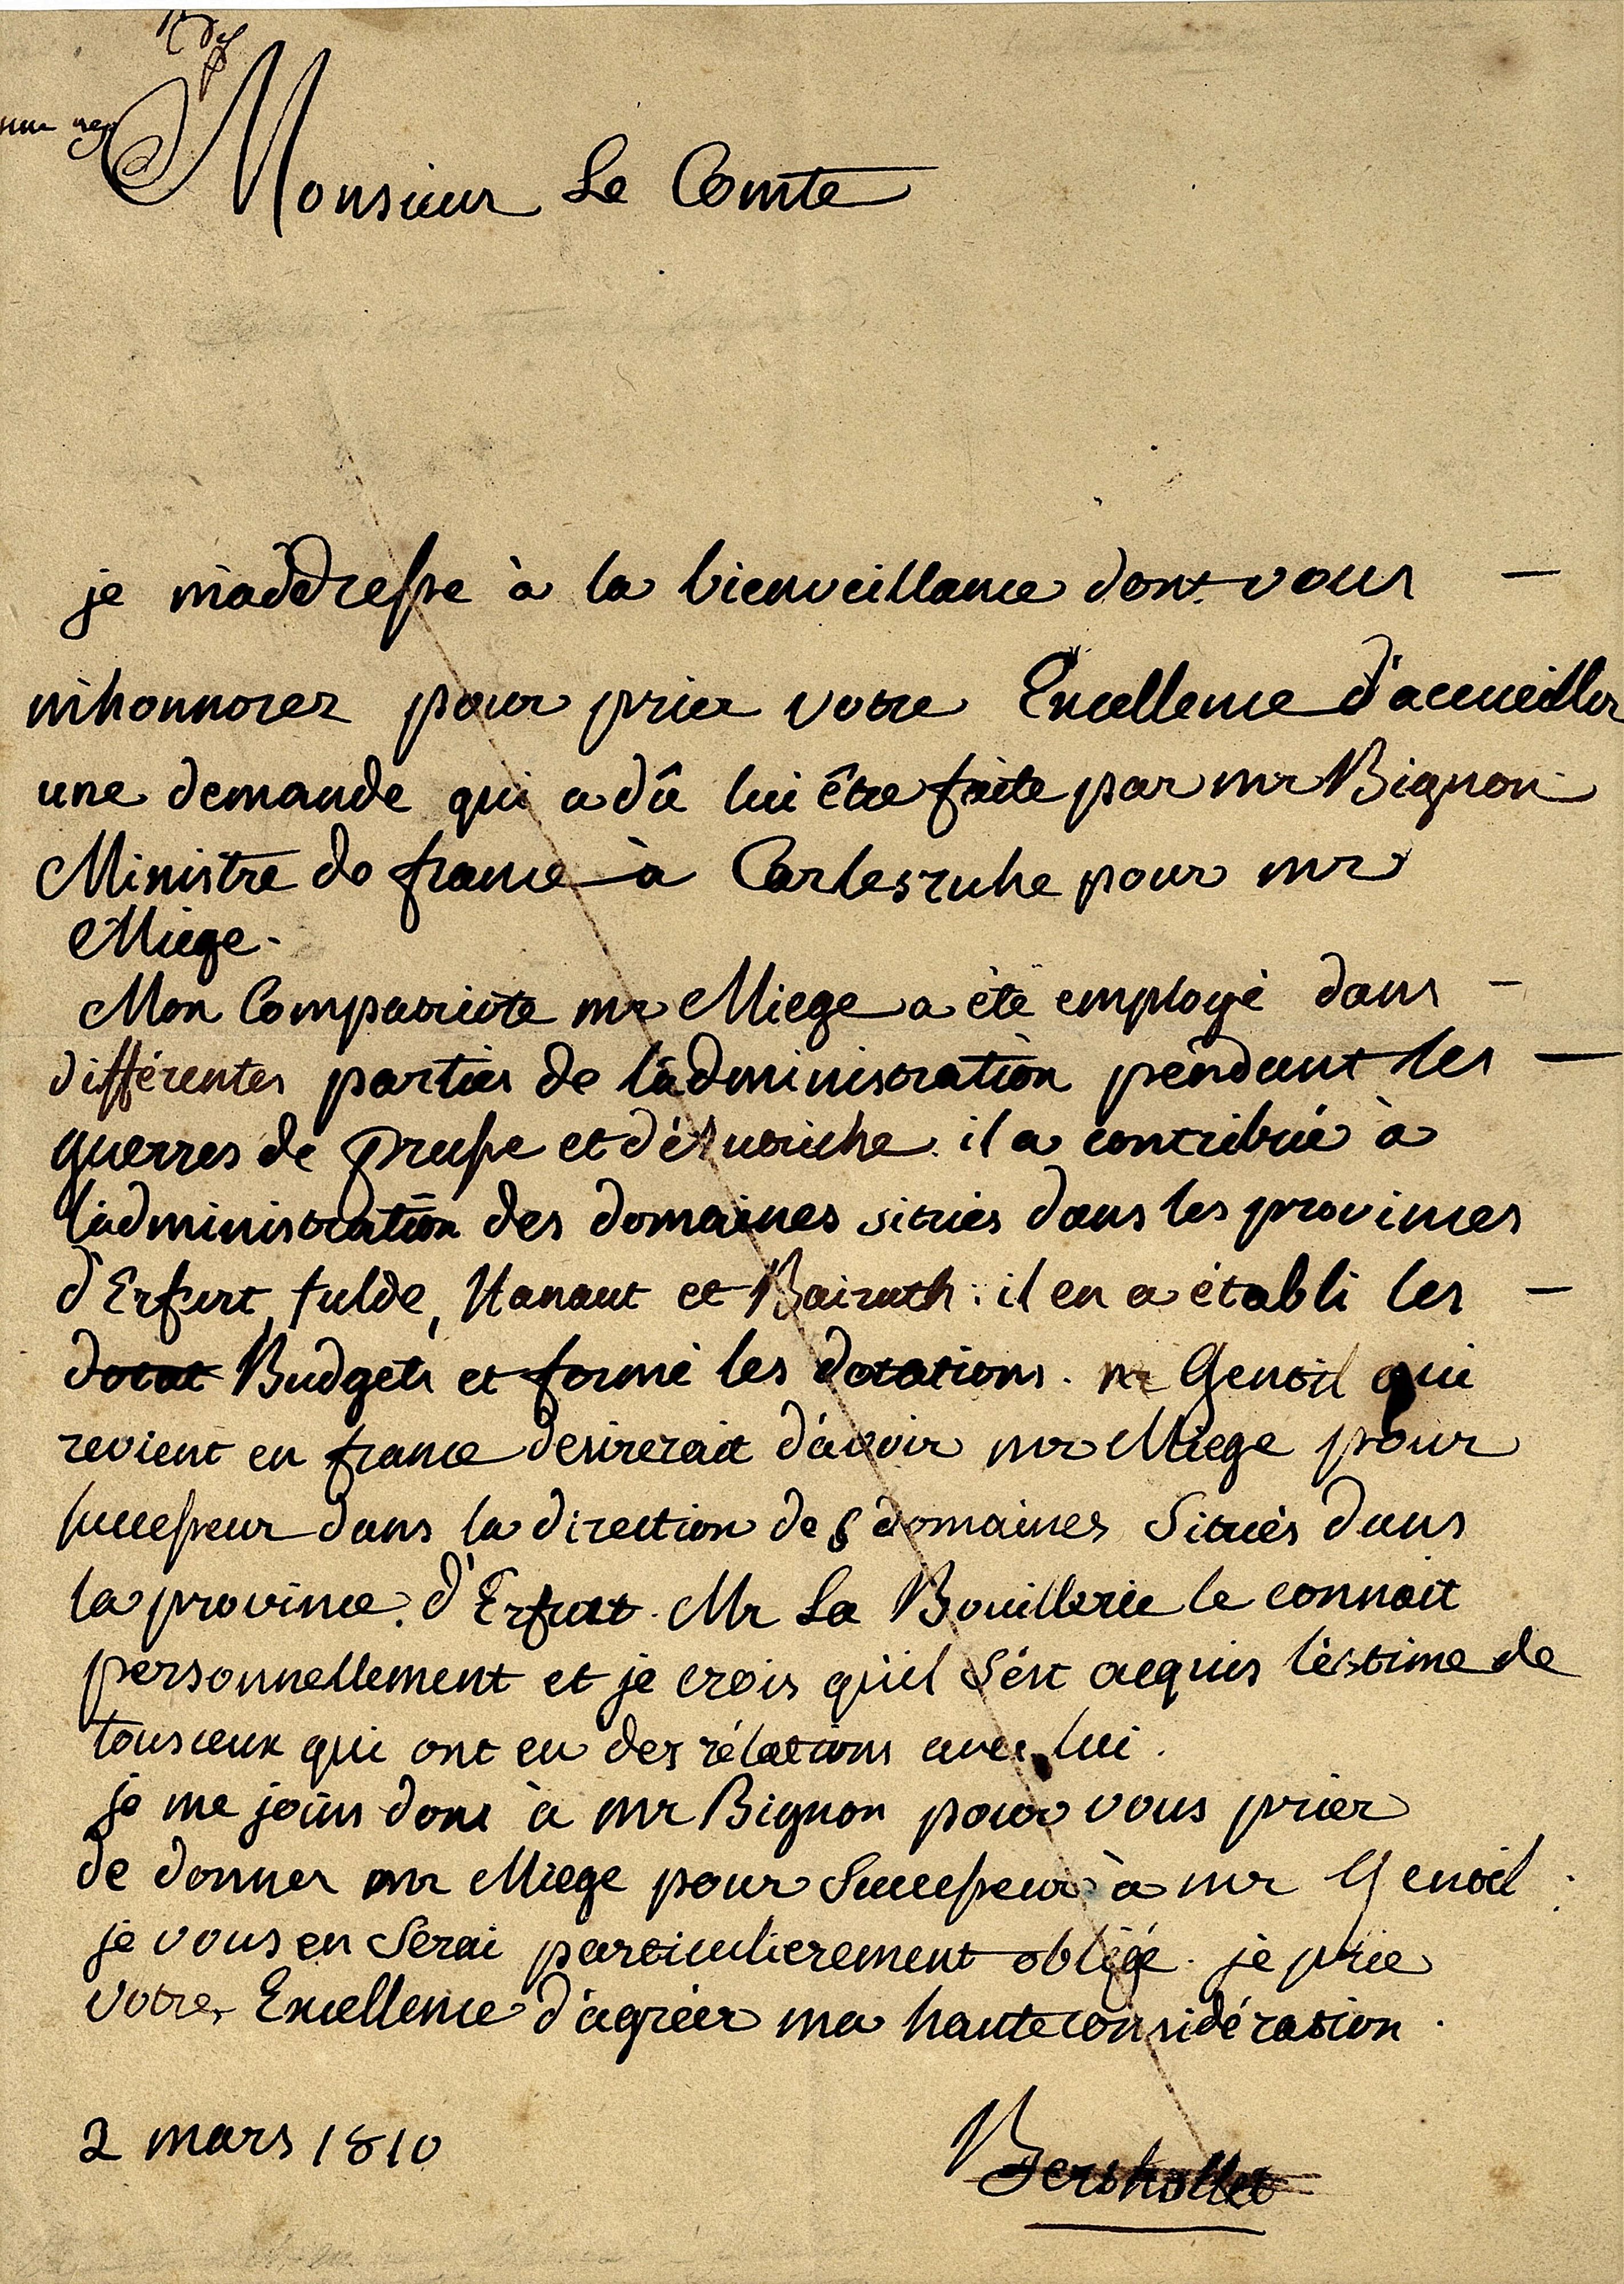 Monsieur Le Comte
je m'addresse à la bienveillance dont vous —
m'honnorez pour prier votre Excellence d'accueillir
une demande qui a dû lui être faite par mr Bignon
Ministre de france à Carlesruhe pour mr
Miege.
Mon Compatriote mr Miege a été employé dans —
différentes parties de l'administration pendant les —
guerres de prusse et d'autriche. il a contribué à
l'administration des domaines situés dans les provinces
d'Erfurt, fulde, Hanaut et Bairuth : il en a établi les —
dotat Budgets et formé les dotations. mr Gentil qui
revient en france desirerait d'avoir mr Miege pour
successeur dans la direction des domaines situés dans
la province d'Erfurt. Mr La Bouillerie le connait
personnellement et je crois qu'il s'est acquis l'estime de
tous ceux qui ont eu des rélations avec lui.
je me joins donc à mr Bignon pour vous prier
de donner mr Miege pour Successeur à mr Gentil :
je vous en serai particulierement obligé. je prie
votre Excellence d'agréer ma haute considération.
2 mars 1810
Berthollet